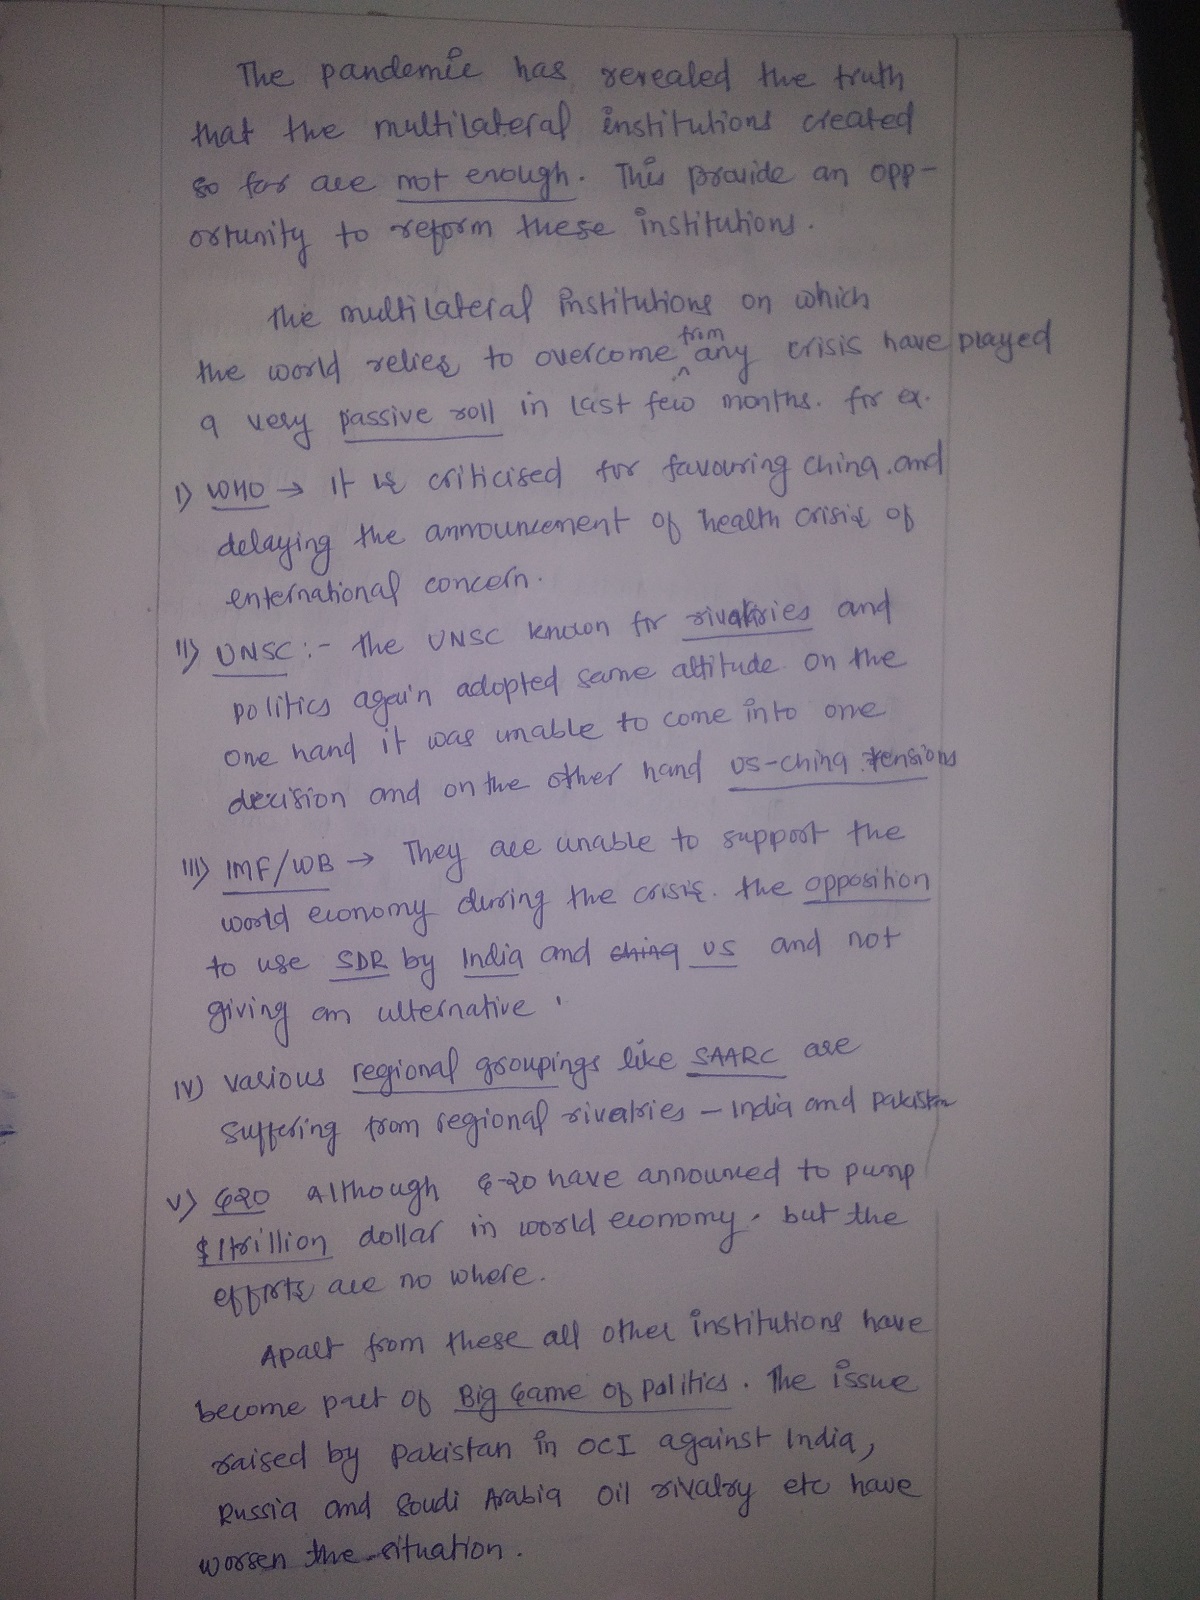 The pandemic has revealed the truth
that the multilateral institutions created
so far are not enough. This provide an opp-
ortunity to reform these institutions.
The multilateral institutions on which
the world relies to overcome from any crisis have played
a very passive roll in last few months. for ex.
i) WHO → It is criticised for favouring China and
delaying the announcement of health crisis of
enternational concern.
ii) UNSC :- The UNSC known for rivalries and
politics again adopted same attitude. on the
one hand it was unable to come into one
decision and on the other hand US-China tensions
iii) IMF/WB → They are unable to support the
world economy during the crisis. The opposition
to use SDR by India and China US and not
giving an alternative.
iv) Various regional groupings like SAARC are
suffering from regional rivalries - India and Pakistan
v) G20 Although G-20 have announced to pump
$1trillion dollar in world economy. but the
efforts are no where.
Apart from these all other institutions have
become part of Big Game of politics. The issue
raised by Pakistan in OCI against India,
Russia and Soudi Arabia oil rivalry etc have
worsen the situation.